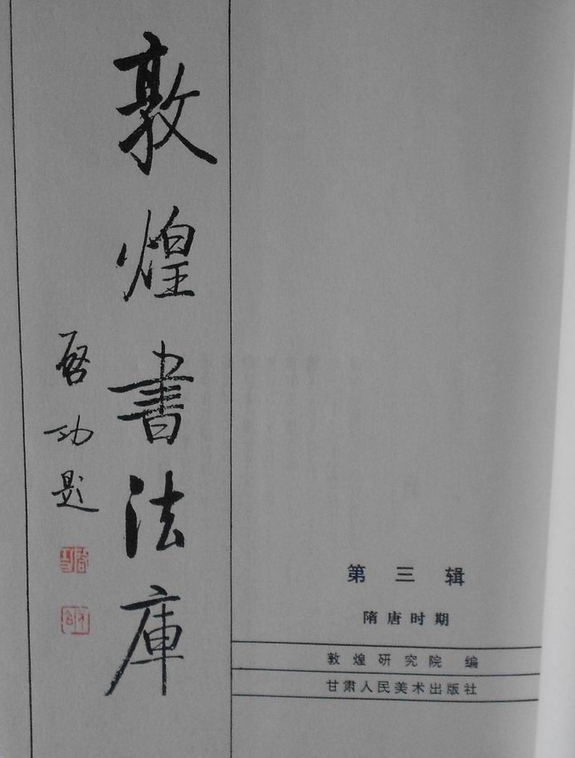 敦煌書法庫
启功题
第三辑
隋唐时期
敦煌研究院 编
甘肃人民美术出版社